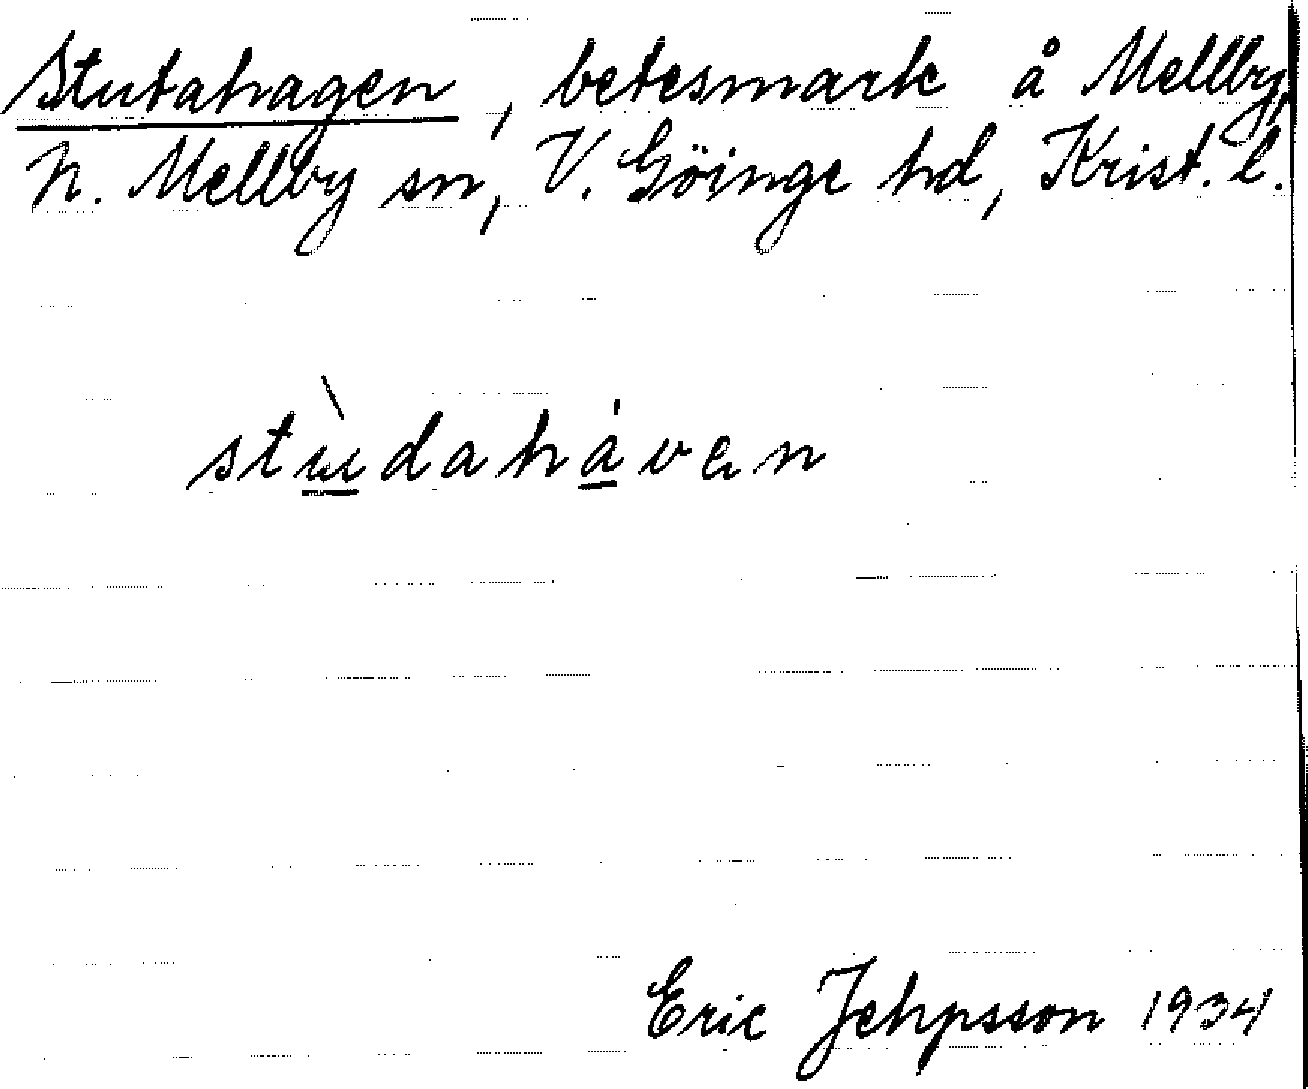 Stutahagen, betesmark å Mellby,
N. Mellby sn, V. Göinge hd, Krist. l.
stùdaháven
Eric Jehpsson 1934